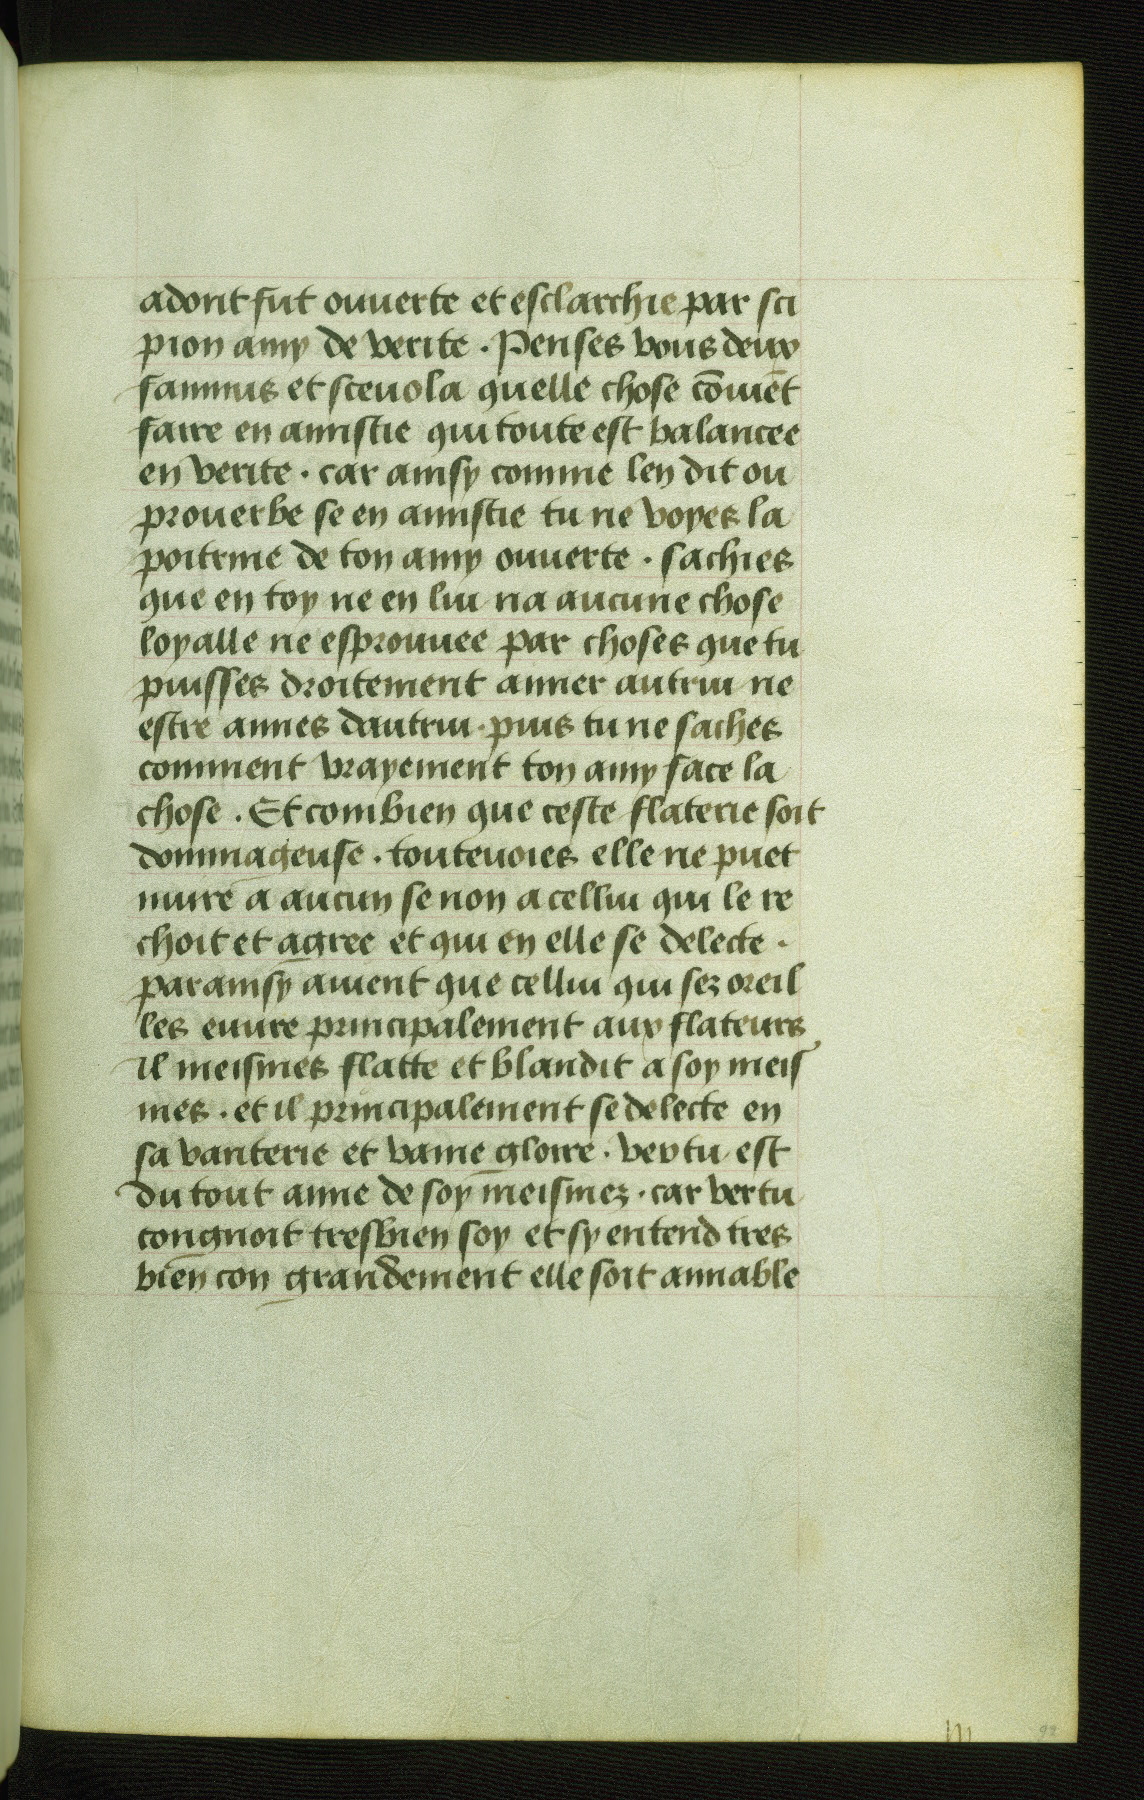 adont fut ouuerte et esclarchie par sci
pion amy de verite . Penses vous deux
fannius et sceuola quelle chose cōuiēt
faire en amistie qui toute est balancee
en verite . car ainsy comme len dit ou
prouerbe se en amistie tu ne voyes la
poitrine de ton amy ouuerte . saches
que en toy ne en lui na aucune chose
loyalle ne esprouuee par choses que tu
puisses droitement aimer autrui ne
estre aimes dautrui . puis tu ne saches
comment vrayement ton amy face la
chose . Et combien que ceste flaterie soit
dommageuse . touteuoies elle ne puet
nuire a aucun se non a cellui qui le re
choit et agree et qui en elle se delecte .
par ainsy auient que cellui qui sez oreil
les euure principalement aux flateurs
il meismes flatte et blandit a soy meis
mes . et il principalement se delecte en
sa vanterie et vaine gloire . vertu est
du tout aime de soy meismez . car vertu
congnoit tresbien soy et sy entend tres
bien con grandement elle soit amiable
92